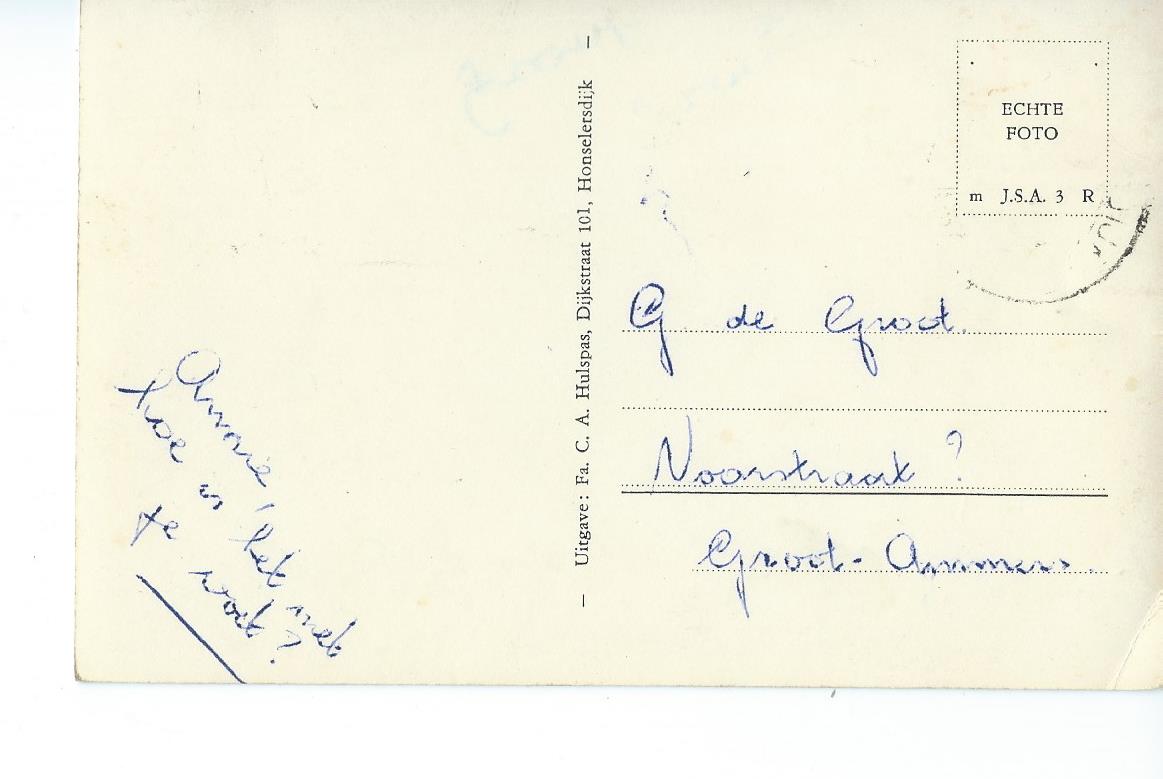 Annie,
hoe is het met
je voet?
Uitgave: Fa. C. A. Hulspas, Dijkstraat 101, Honselersdijk
ECHTE
FOTO
m J.S.A. 3 R
G de Groot.
Noorstraat ?
Groot-Ammers.